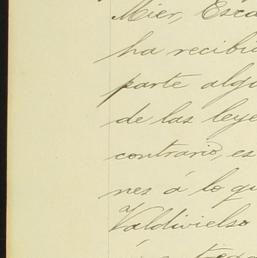 Mier, Esca
ha recibi
parte algu
de las leye
contrario, es
nes á lo qu
Valdivielso